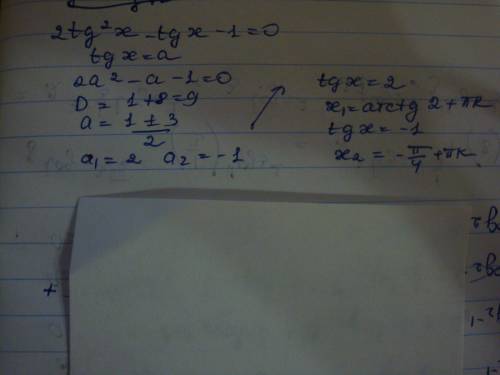 2tg²x - tgx - 1 = 0
tgx = a
2a² - a - 1 = 0
D = 1 + 8 = 9
a = (1 ± 3)/2
a₁ = 2 a₂ = -1
tgx = 2
x₁ = arctg 2 + πk
tgx = -1
x₂ = -π/4 + πk
+